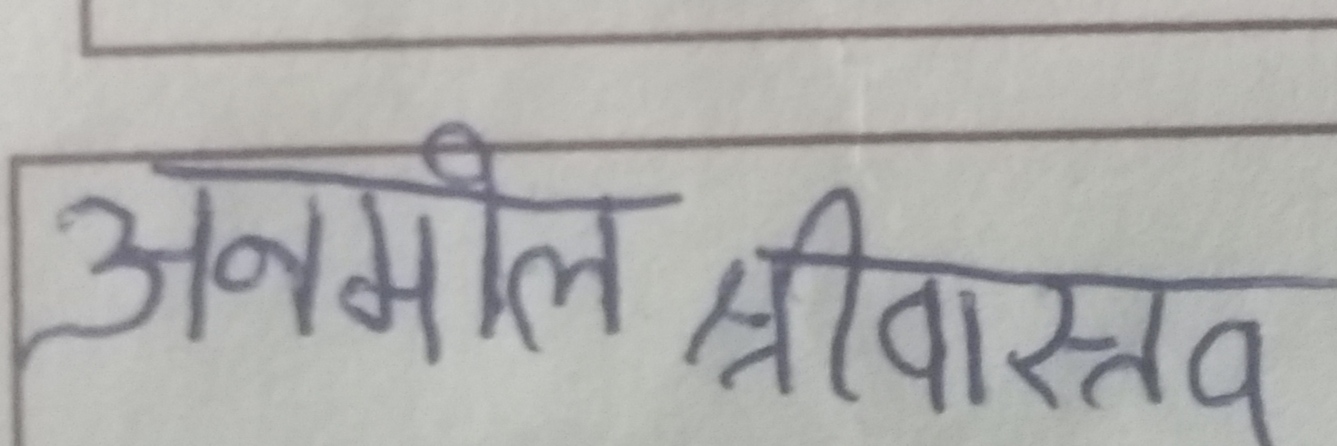 अनमोल श्रीवास्तव